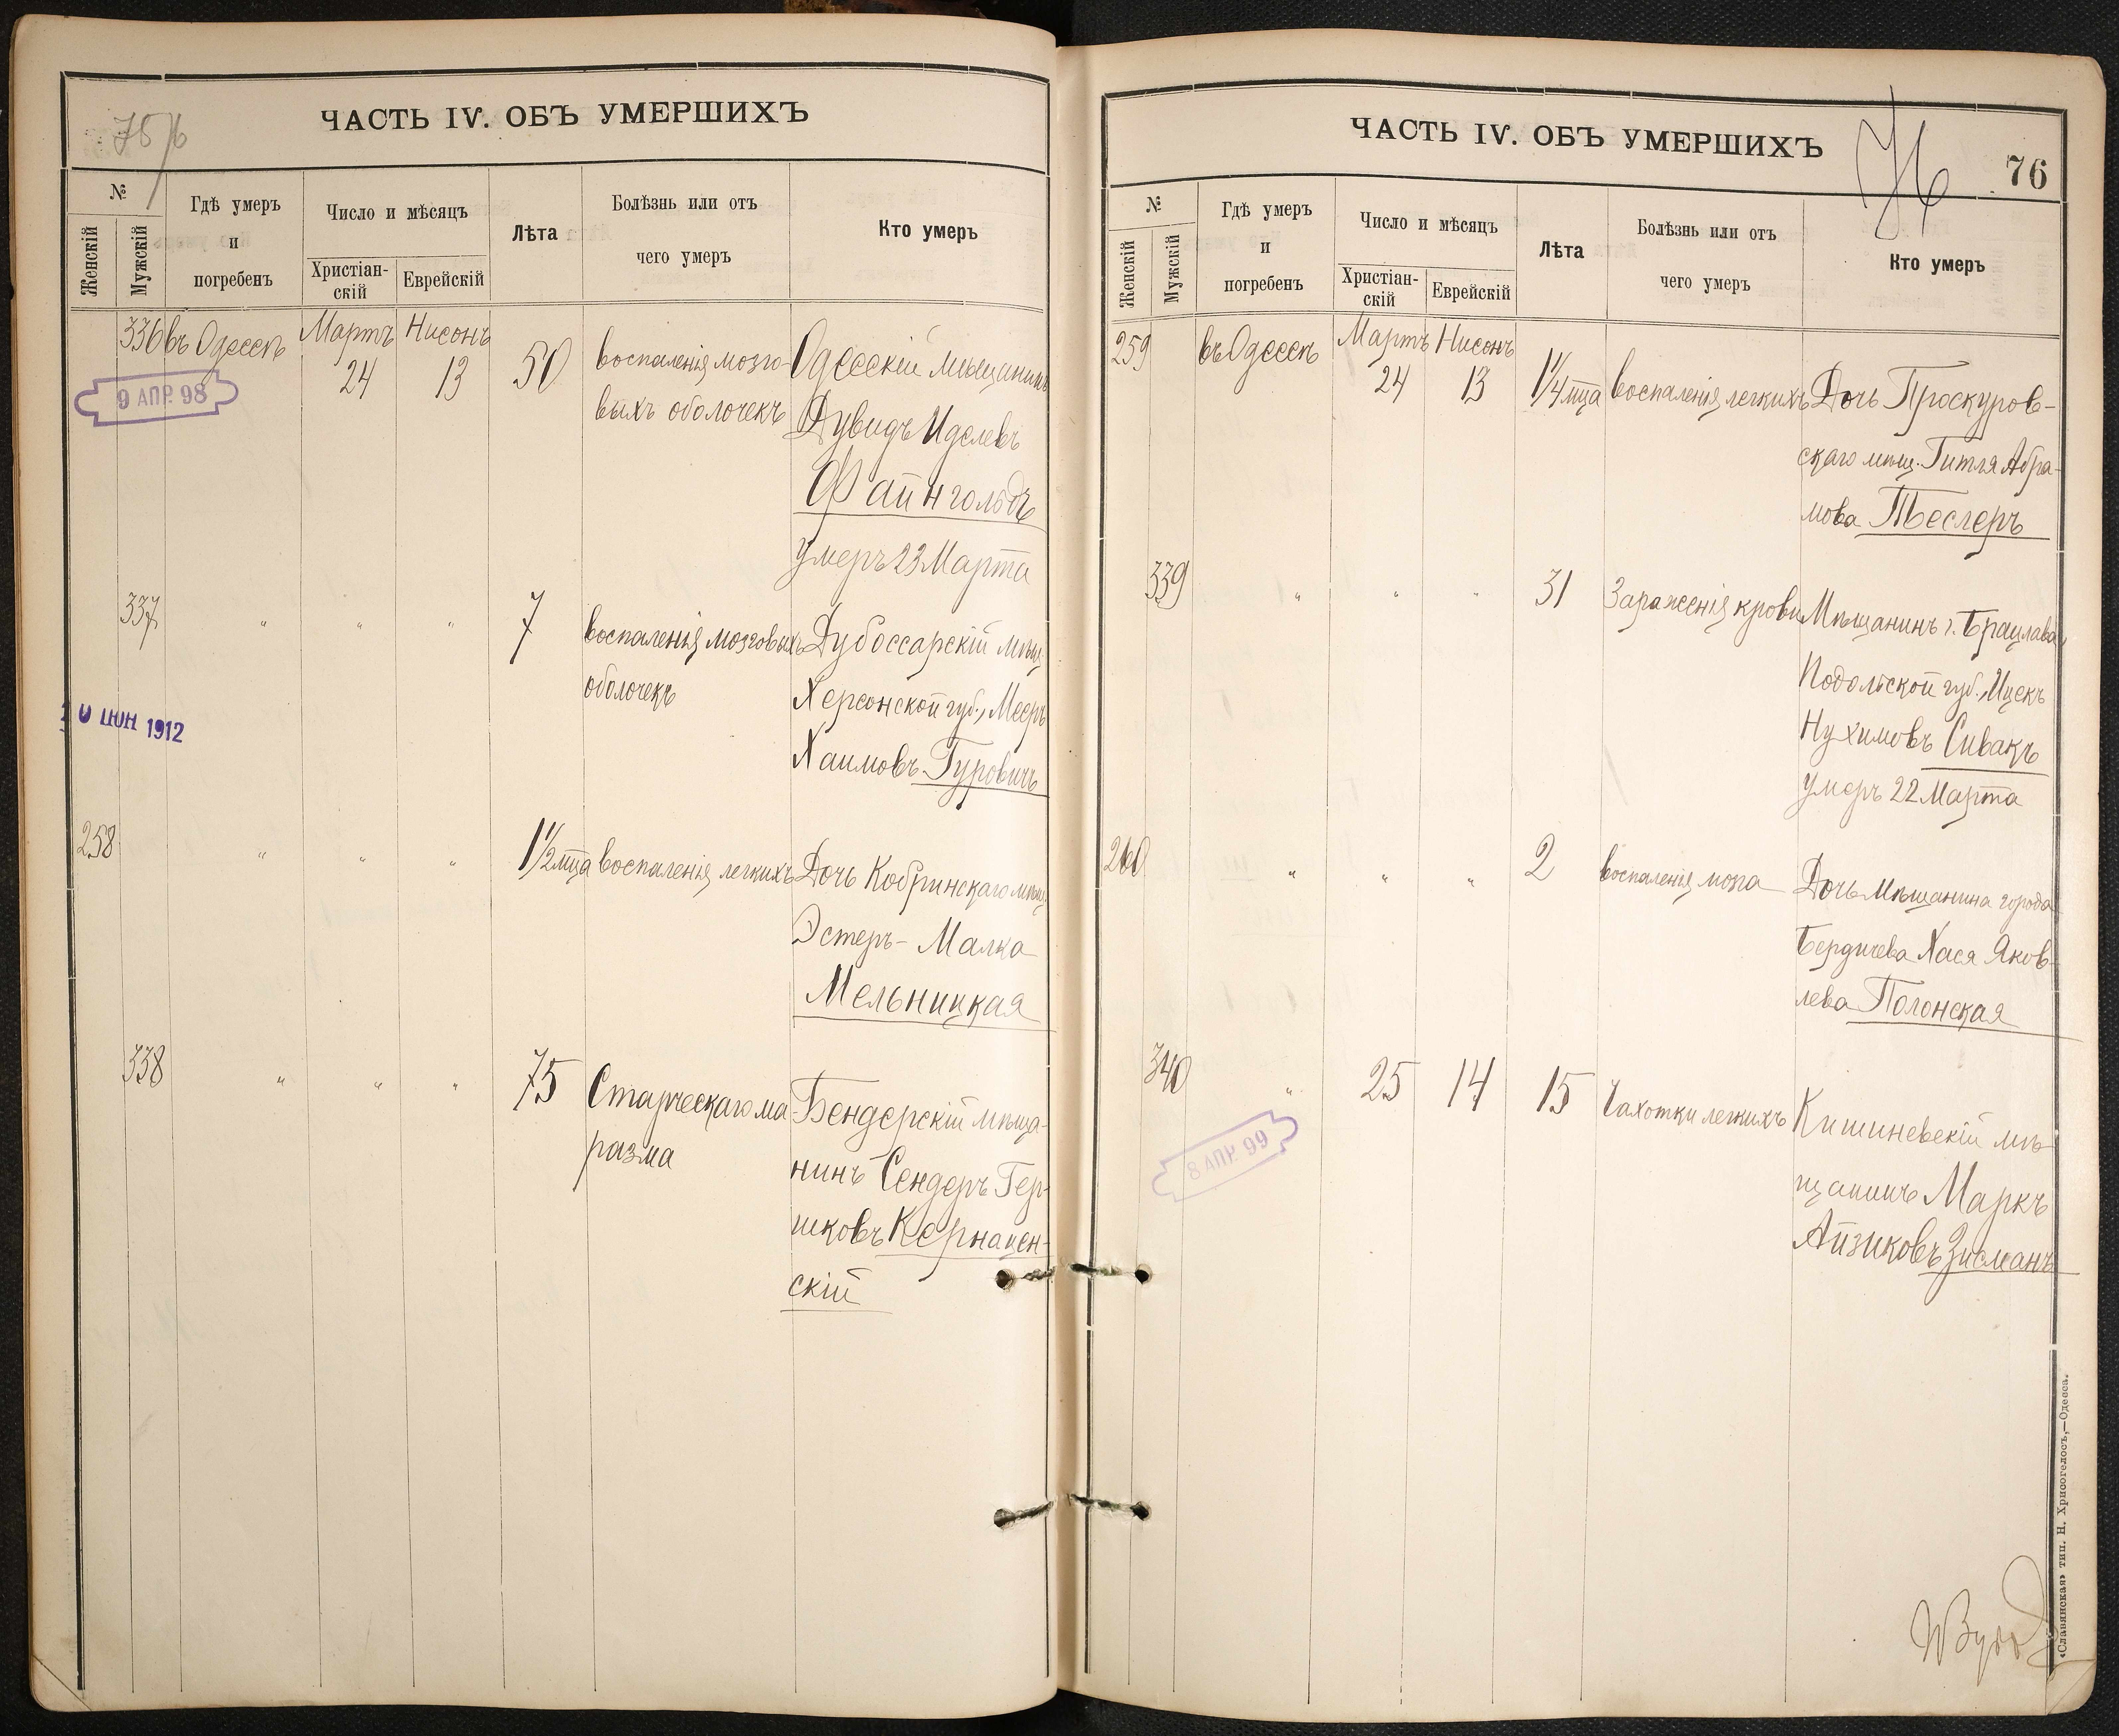 75/6
ЧАСТЬ IV. ОБЪ УМЕРШИХЪ
№
Женскій
Мужскій
Гдѣ умеръ
и
погребенъ
Число и мѣсяцъ
Христіан-
скій
Еврейскій
Лѣта
Болѣзнь или отъ
чего умеръ
Кто умеръ
336 въ Одессѣ Мартъ Нисонъ
24 13 50 воспаленія мозго- Одесскій мѣщанинъ
9 АПР. 98
выхъ оболочекъ Дувидъ Иделевъ
Файнгольдъ
умеръ 23 Марта
337 " " " 7 воспаленія мозговыхъ Дубоссарскій мѣщ.
оболочекъ Херсонской губ., Мееръ
Хаимовъ Гуровичъ
ІЮН 1912
258 " " " 1 1/2 мца воспаленія легкихъ Дочь Кобринскаго мѣщ.
Эстеръ - Малка
Мельницкая
338 " " " 75 Старческаго ма- Бендерскій мѣща-
разма нинъ Сендеръ Гер-
шковъ Кернацен-
скій
ЧАСТЬ IV. ОБЪ УМЕРШИХЪ
76
76
№
Женскій
Мужскій
Гдѣ умеръ
и
погребенъ
Число и мѣсяцъ
Христіан-
скій
Еврейскій
Лѣта
Болѣзнь или отъ
чего умеръ
Кто умеръ
259 въ Одессѣ Мартъ Нисонъ
24 13 1 1/4 мца воспаленія легкихъ Дочь Проскуров-
скаго мѣщ. Гитля Абра-
мова Теслеръ
339 " " " 31 Зараженія крови Мѣщанинъ г. Брацлава,
Подольской губ., Ицекъ
Нухимовъ Сивакъ
умеръ 22 Марта
260 " " " 2 воспаленія мозга Дочь мѣщанина города
Бердичева Хася Яков-
лева Полонская
340 " 25 14 15 Чахотки легкихъ Кишиневскій мѣ-
щанинъ Маркъ
Айзиковъ Зисманъ
8 АПР. 99
«Славянская» тип. Н. Хрисогелосъ,—Одесса.